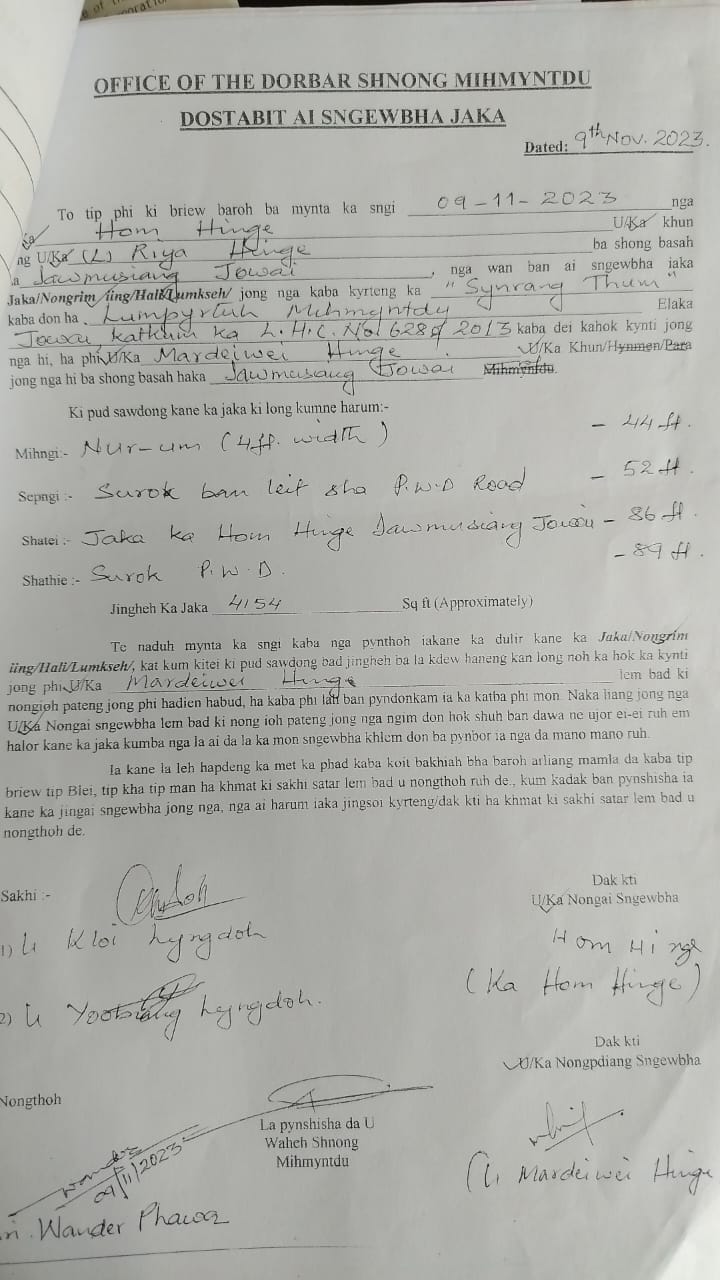 OFFICE OF THE DORBAR SHNONG MIHMYNTDU
DOSTABIT AI SNGEWBHA JAKA
Dated: 9th Nov. 2023.
To tip phi ki briew baroh ba mynta ka sngi 09-11-2023 nga
Ka Hom Hinge U/Ka khun
ng U/Ka (L) Riya Hinge ba shong basah
a Iawmusiang Jowai, nga wan ban ai sngewbha iaka
Jaka/Nongrim /iing/Hali/Lumkseh/ jong nga kaba kyrteng ka "Synrang Thum"
kaba don ha Lumpyrtuh Mihmyntdu Elaka
Jowai, katkum ka L.H.C. No. 628 of 2013 kaba dei kahok kynti jong
nga hi, ha phi U/Ka Mardeiwei Hinge U/Ka Khun/Hynmen/Para
jong nga hi ba shong basah haka Iawmusiang Jowai Mihmyntdu.
Ki pud sawdong kane ka jaka ki long kumne harum:-
Mihngi:- Nur-um (4ft. width) - 44 ft.
Sepngi :- Surok ban leit sha P.W.D Road - 52 ft.
Shatei :- Jaka ka Hom Hinge Iawmusiang Jowai - 86 ft.
Shathie :- Surok P.W.D. - 89 ft.
Jingheh Ka Jaka 4154 Sq ft (Approximately)
Te naduh mynta ka sngi kaba nga pynthoh iakane ka dulir kane ka Jaka/Nongrim
iing/Hali/Lumkseh/, kat kum kitei ki pud sawdong bad jingheh ba la kdew haneng kan long noh ka hok ka kynti
jong phi U/Ka Mardeiwei Hinge lem bad ki
nongioh pateng jong phi hadien habud, ha kaba phi lah ban pyndonkam ia ka katba phi mon. Naka liang jong nga
U/Ka Nongai sngewbha lem bad ki nong ioh pateng jong nga ngim don hok shuh ban dawa ne ujor ei-ei ruh em
halor kane ka jaka kumba nga la ai da la ka mon sngewbha khlem don ba pynbor ia nga da mano mano ruh.
Ia kane la leh hapdeng ka met ka phad kaba koit bakhiah bha baroh arliang mamla da kaba tip
briew tip Blei, tip kha tip man ha khmat ki sakhi satar lem bad u nongthoh ruh de., kum kadak ban pynshisha ia
kane ka jingai sngewbha jong nga, nga ai harum iaka jingsoi kyrteng/dak kti ha khmat ki sakhi satar lem bad u
nongthoh de.
Sakhi :-
Dak kti
U/Ka Nongai Sngewbha
1) U Kloi Lyngdoh
Hom Hinge
(Ka Hom Hinge)
2) U Yoobiang Lyngdoh.
Dak kti
U/Ka Nongpdiang Sngewbha
Nongthoh
La pynshisha da U
Waheh Shnong
Mihmyntdu
09/11/2023
(U Mardeiwei Hinge
Wander Phawa